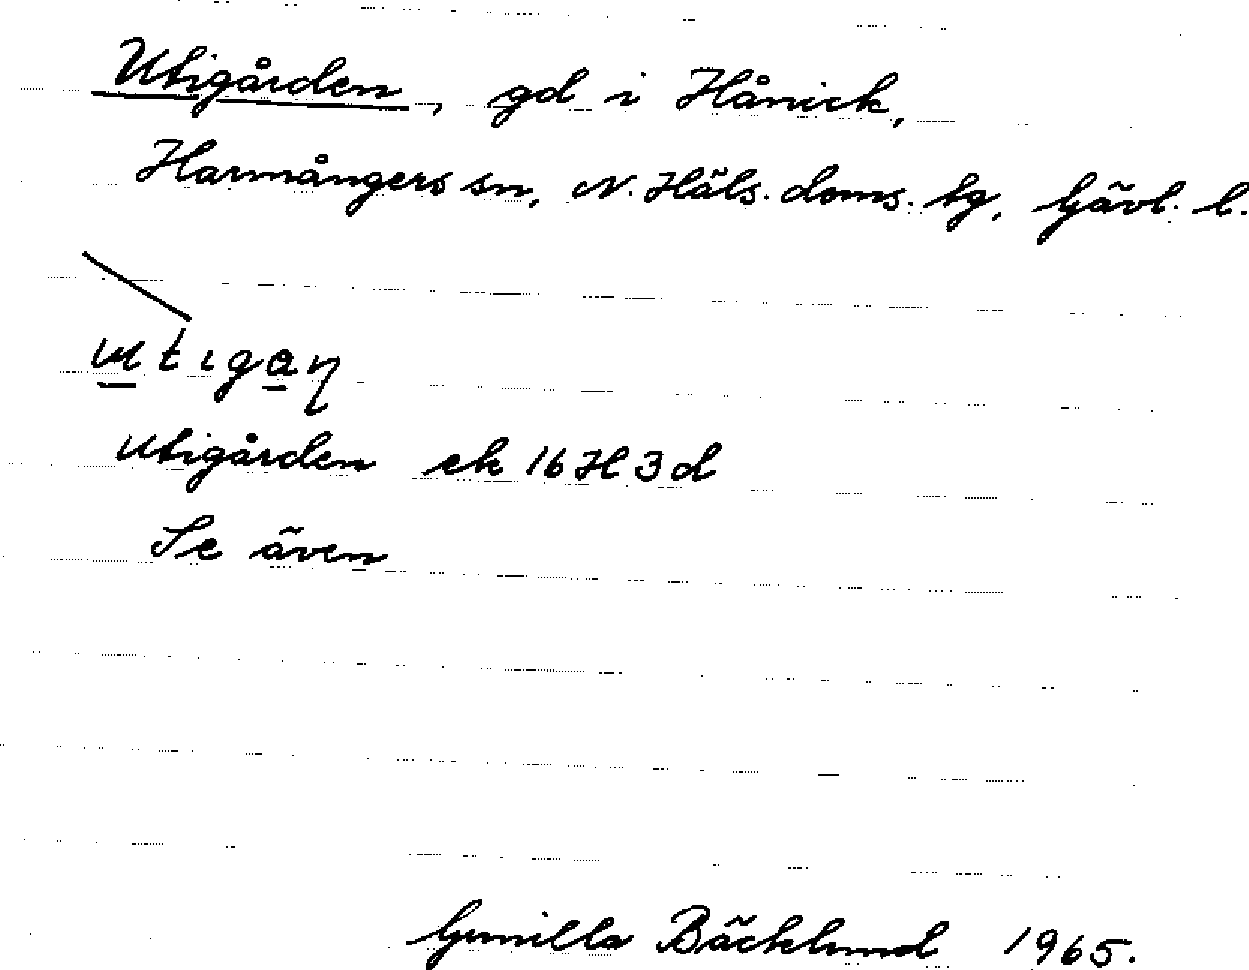 Utigården, gd i Hånick,
Harmångers sn, N. Häls. doms. tg, Gävl. l.
utigaɳ
Utigården ek 16H3d
Se även
Gunilla Bäcklund 1965.